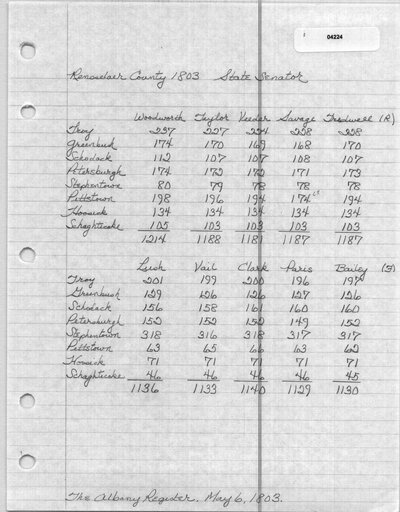 04224
Rensselaer County 1803 State Senator
Woodworth Taylor Veeder Savage Tredwell (R)
Troy 237 227 224 228 228
Greenbush 174 170 169 168 170
Schodack 112 107 107 108 107
Petersburgh 174 172 172 171 173
Stephentown 80 79 78 78 78
Pittstown 198 196 194 174 194
Hoosick 134 134 134 134 134
Schaghticoke 105 103 103 103 103
1214 1188 1181 1187 1187
Lush Vail Clark Paris Bailey (F)
Troy 201 199 200 196 197
Greenbush 129 126 126 127 126
Schodack 156 158 161 160 160
Petersburgh 152 152 152 149 152
Stephentown 318 316 318 317 317
Pittstown 63 65 66 63 62
Hoosick 71 71 71 71 71
Schaghticoke 46 46 46 46 45
1136 1133 1140 1129 1130
The Albany Register. May 6, 1803.